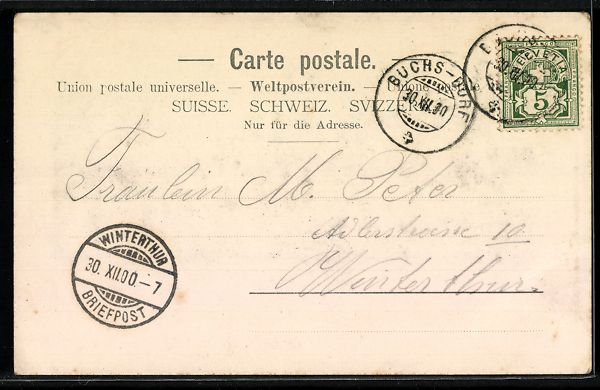 — Carte postale. —
Union postale universelle. — Weltpostverein. — Unione
SUISSE. SCHWEIZ. SVIZZ
Nur für die Adresse.
BUCHS-DORF
30.XII.00
HELVETIA
5
Fräulein M. Peter
Adlerstrasse 10
Winterthur.
WINTERTHUR
30. XII.00.–7
BRIEFPOST